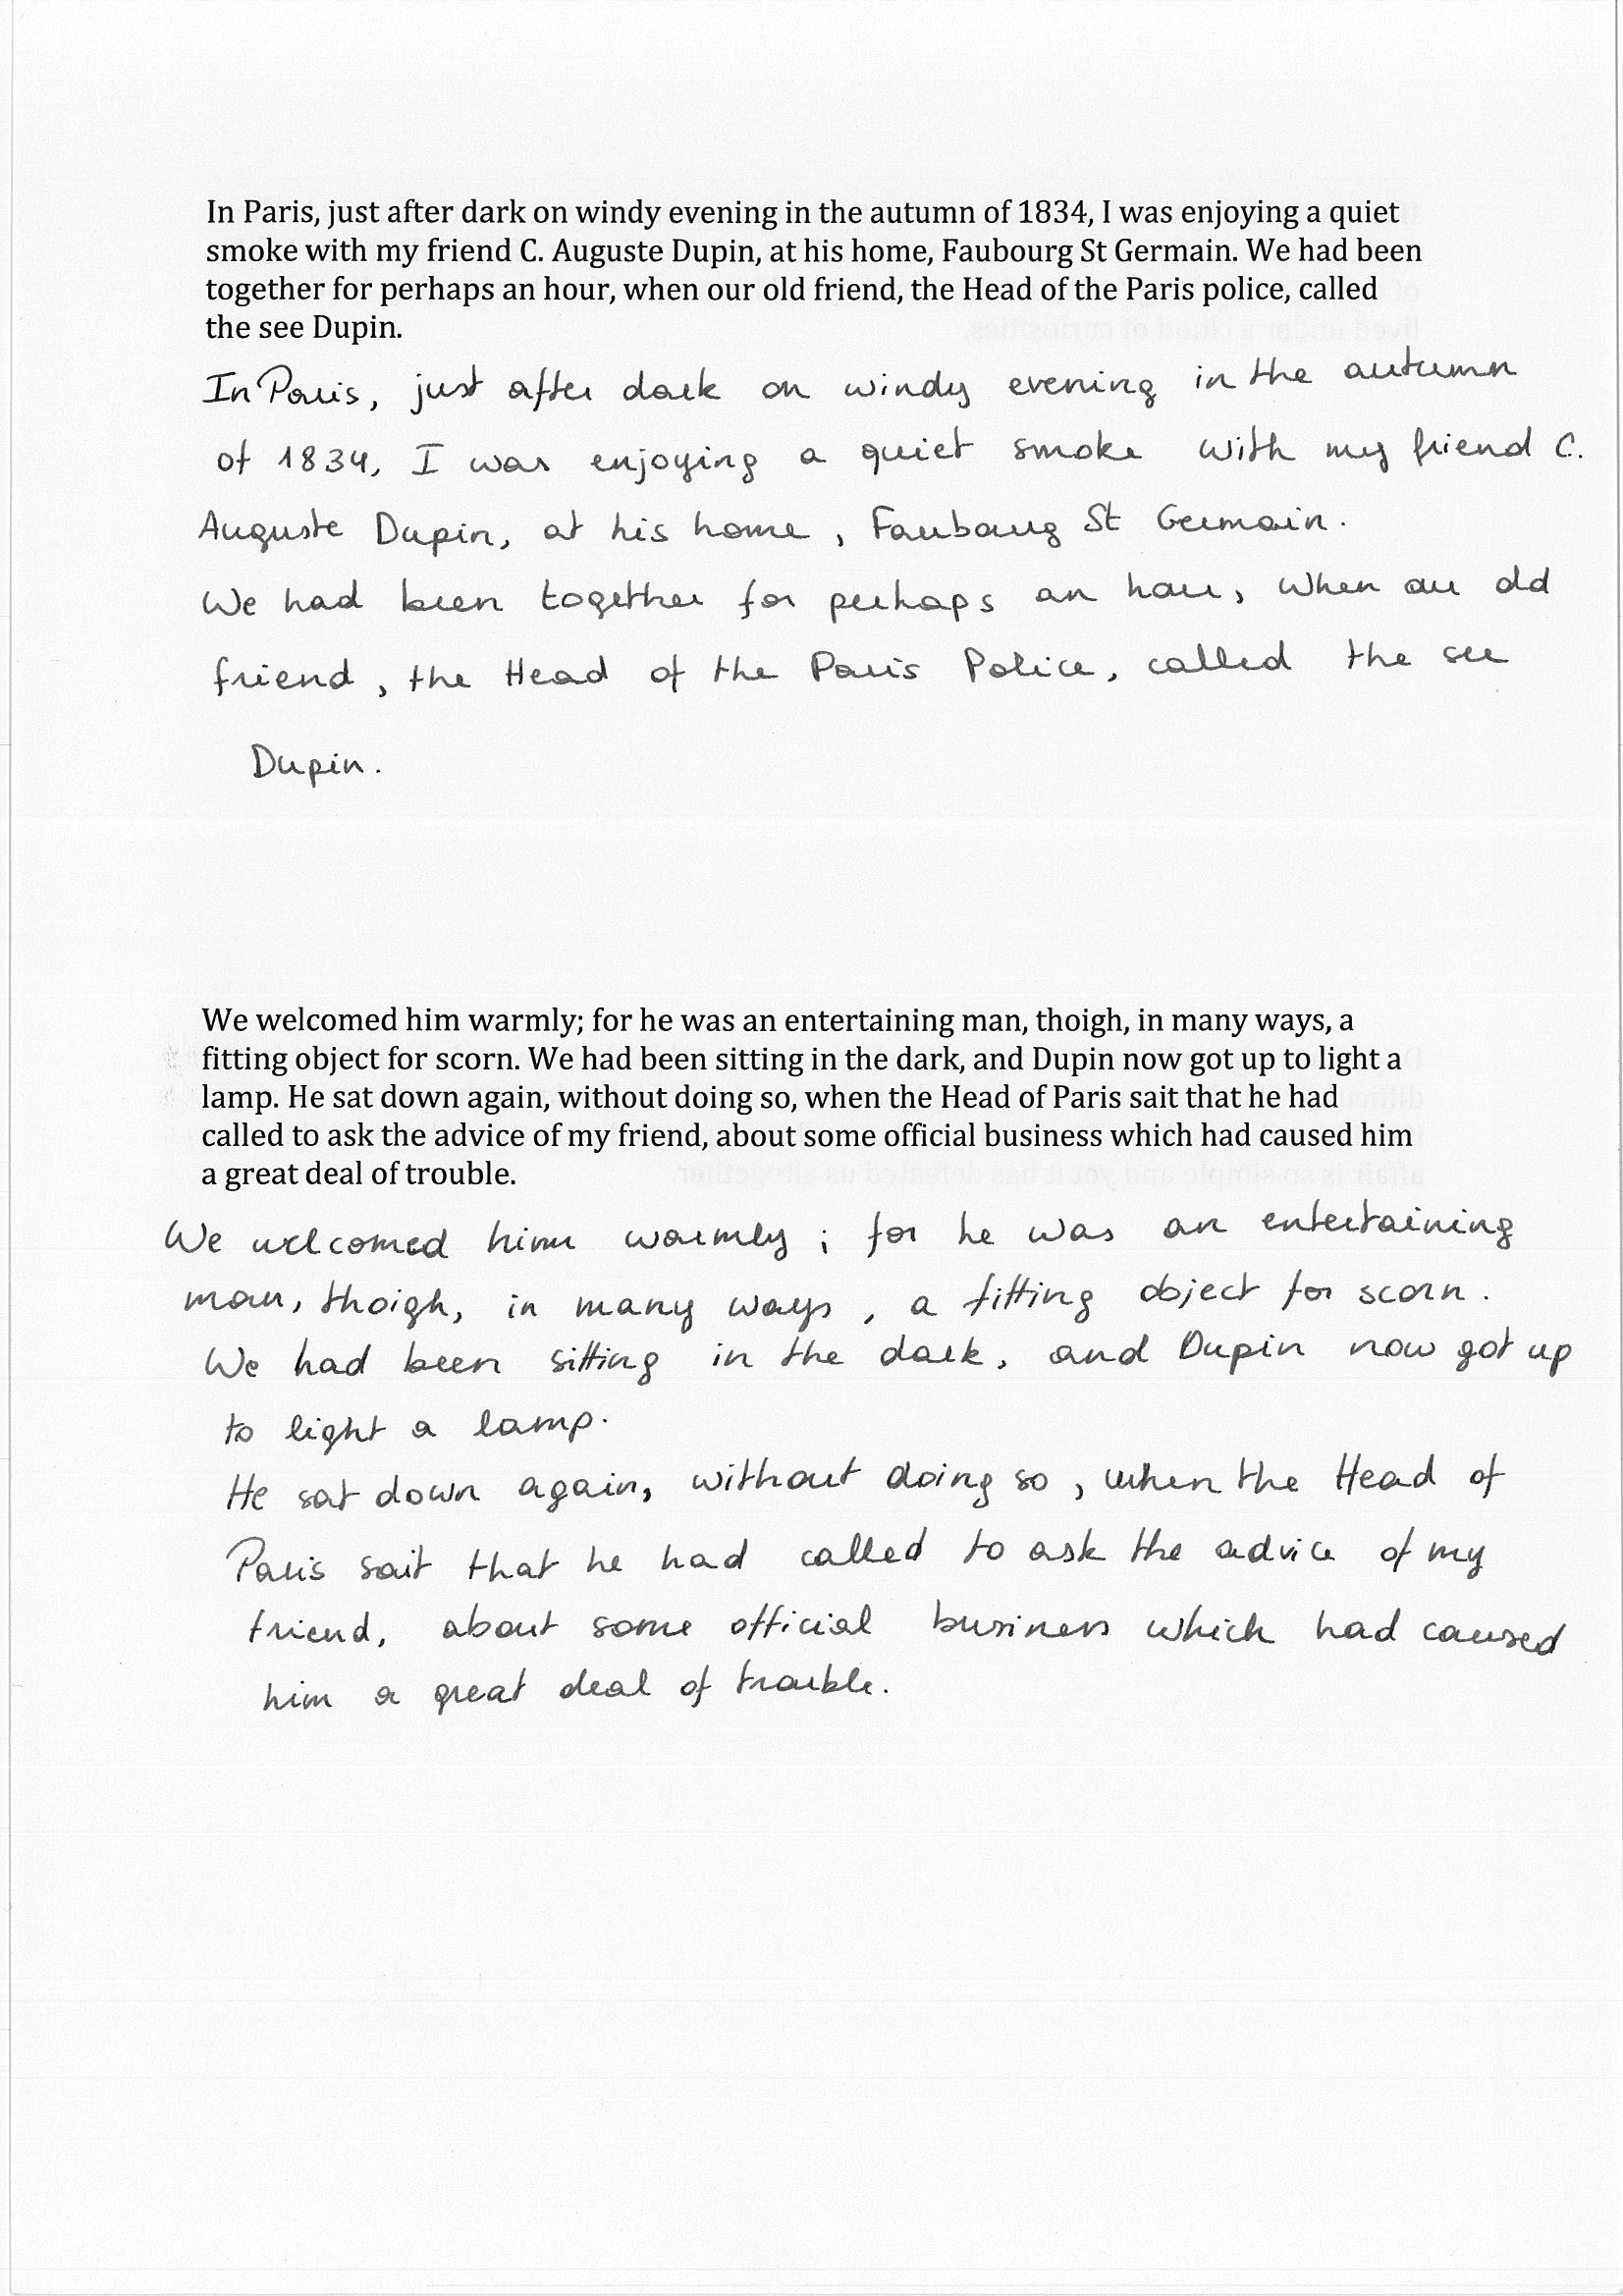 In Paris, just after dark on windy evening in the autumn of 1834, I was enjoying a quiet
smoke with my friend C. Auguste Dupin, at his home, Faubourg St Germain. We had been
together for perhaps an hour, when our old friend, the Head of the Paris police, called
the see Dupin.
In Paris, just after dark on windy evening in the autumn
of 1834, I was enjoying a quiet smoke with my friend C.
Auguste Dupin, at his home, Faubourg St Germain.
We had been together for perhaps an hour, when our old
friend, the Head of the Paris Police, called the see
Dupin.
We welcomed him warmly; for he was an entertaining man, thoigh, in many ways, a
fitting object for scorn. We had been sitting in the dark, and Dupin now got up to light a
lamp. He sat down again, without doing so, when the Head of Paris sait that he had
called to ask the advice of my friend, about some official business which had caused him
a great deal of trouble.
We welcomed him warmly; for he was an entertaining
man, thoigh, in many ways, a fitting object for scorn.
We had been sitting in the dark, and Dupin now got up
to light a lamp.
He sat down again, without doing so, when the Head of
Paris sait that he had called to ask the advice of my
friend, about some official business which had caused
him a great deal of trouble.